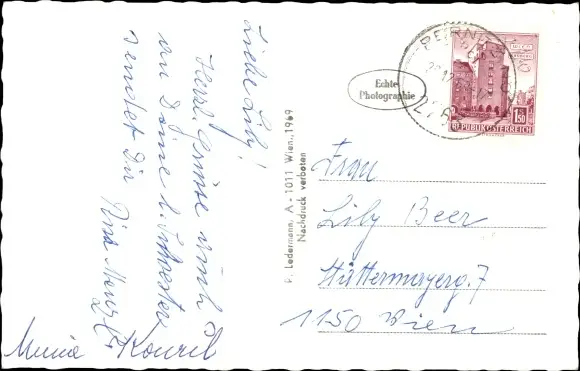 Liebe Lily!
Herzl. Grüsse auch
an Deine l. Schwester
sendet Dir
Minna Kouril
Echte
Photographie
P. Ledermann, A - 1011 Wien, 1969
Nachdruck verboten
WIEN
1.50
REPUBLIK ÖSTERREICH
Frau
Lily Beer
7
1150 Wien